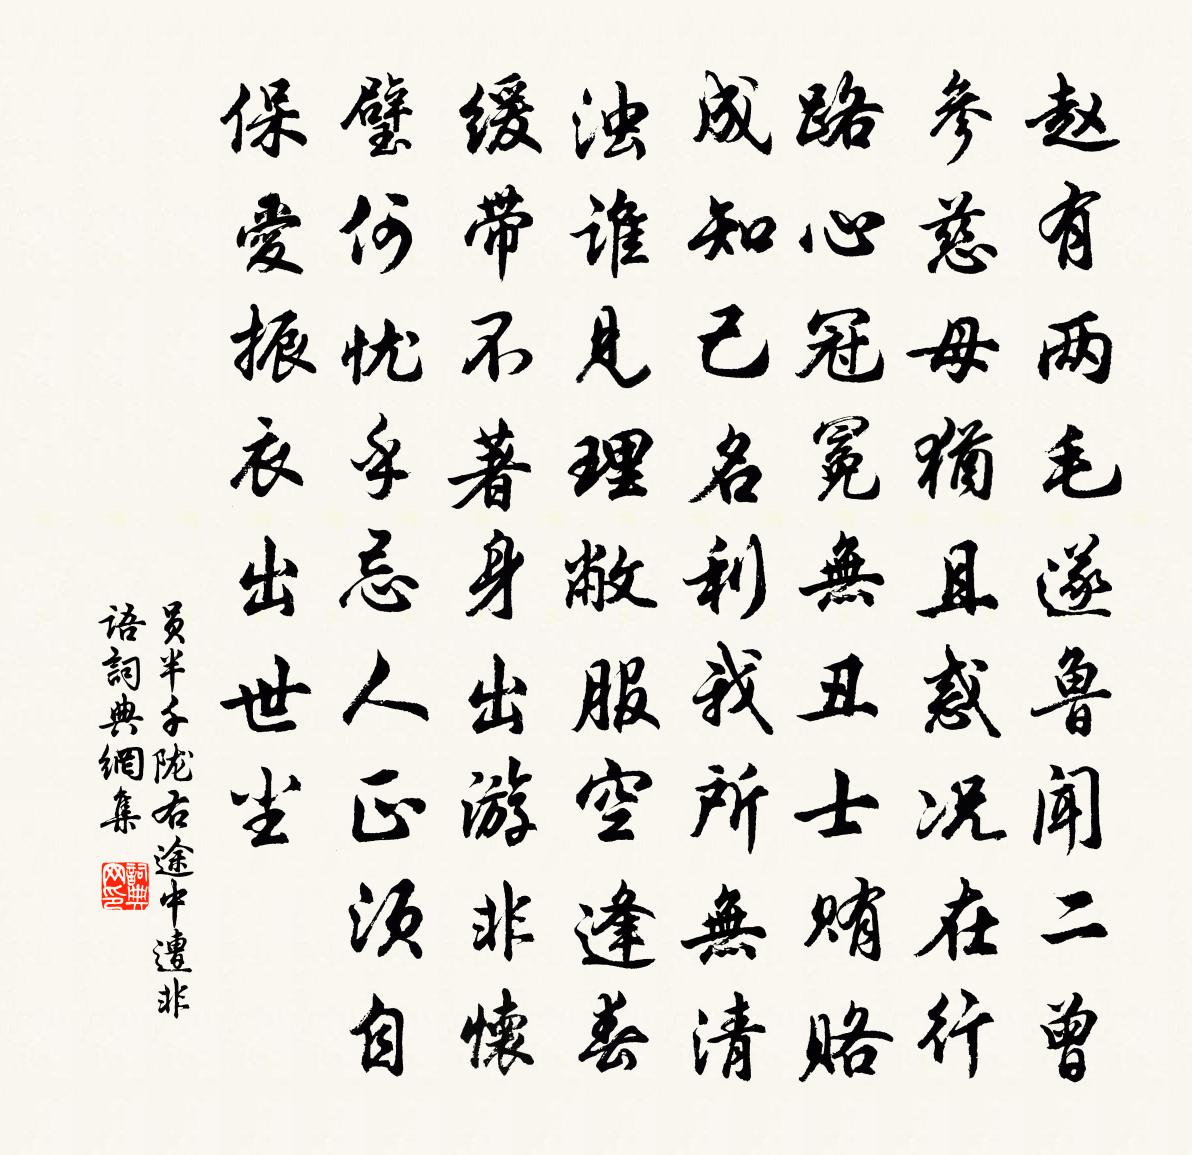 赵有两毛遂鲁闻二曾
參慈母猶且惑况在行
路心冠冕無丑士賄賂
成知己名利我所無清
浊谁見理敝服空逢春
缓带不著身出游非懷
璧何忧乎忌人正须自
保愛振衣出世尘
员半千陇右途中遭非
语詞典網集
詞典网印